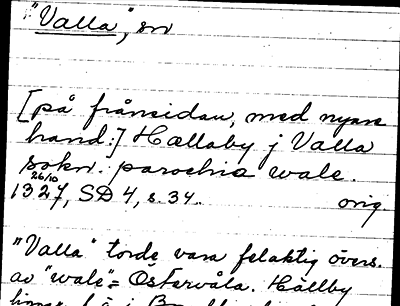 "Valla", sn
[på frånsidan, med nyare
hand:] Hallaby j Valla
sokn. parochia wale.
26/10
1327, SD 4, s. 34. orig.
"Valla" torde vara felaktig övers.
av "wale" = Östervåla. Hällby